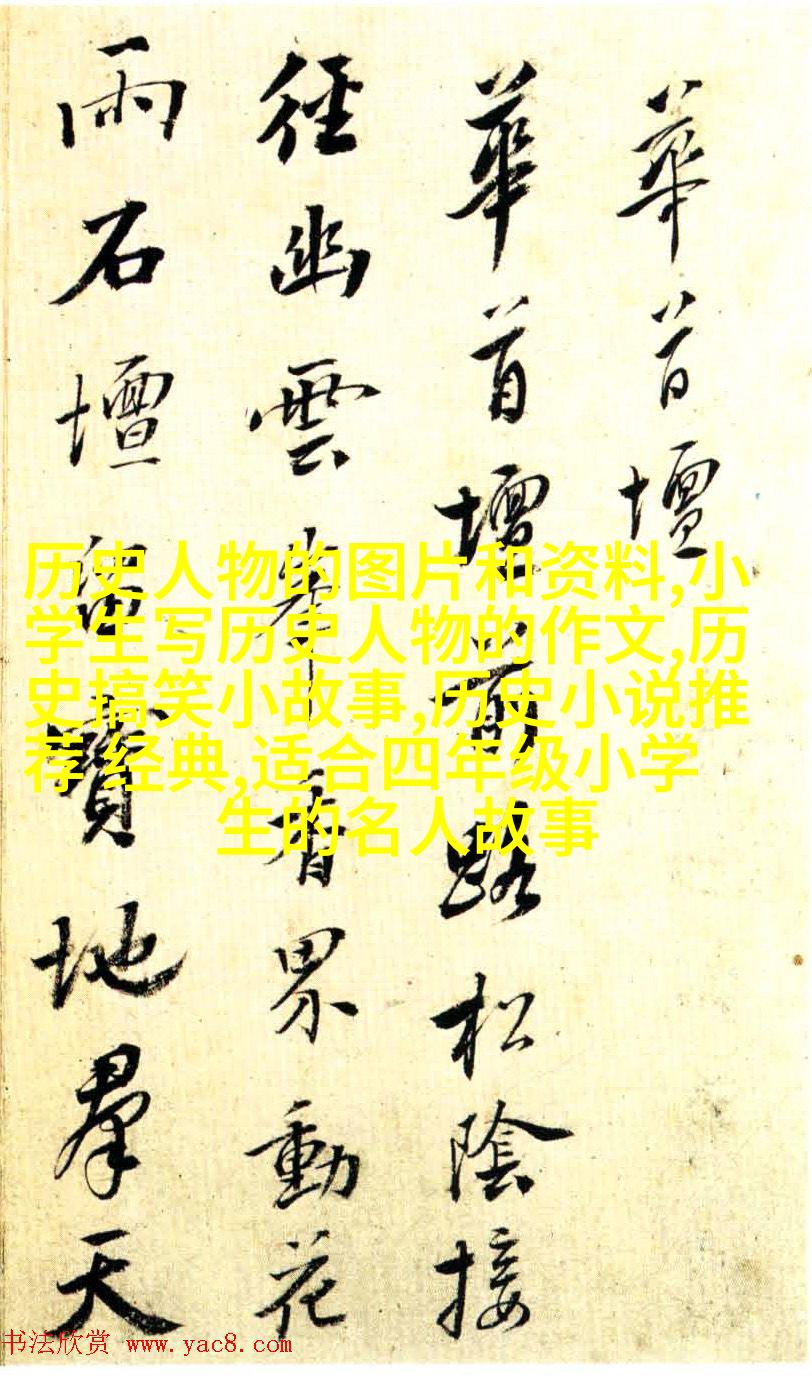 華首壇
華首壇前路松陰接
徑幽雲峯香界動花
雨石壇留寶地羣天
历史人物的图片和资料,小
学生写历史人物的作文,历
史搞笑小故事,历史小说推
荐 经典,适合四年级小学
生的名人故事
书法欣赏 www.yac8.com